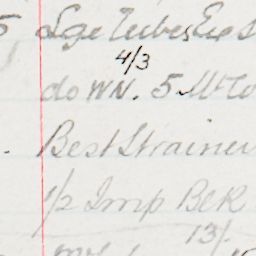 5 Lge Tubes Exp
4/3
do WN. 5
Best Strainer
1/2 Imp BLK
13/-